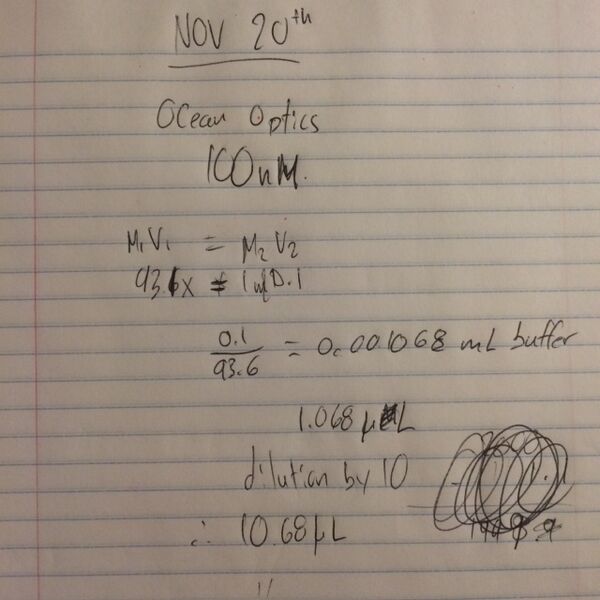 NOV 20th
Ocean Optics
100nM.
M1V1 = M2V2
93.6x = 1 0.1
0.1 / 93.6 = 0.001068 mL buffer
1.068 µL
dilution by 10
∴ 10.68µL